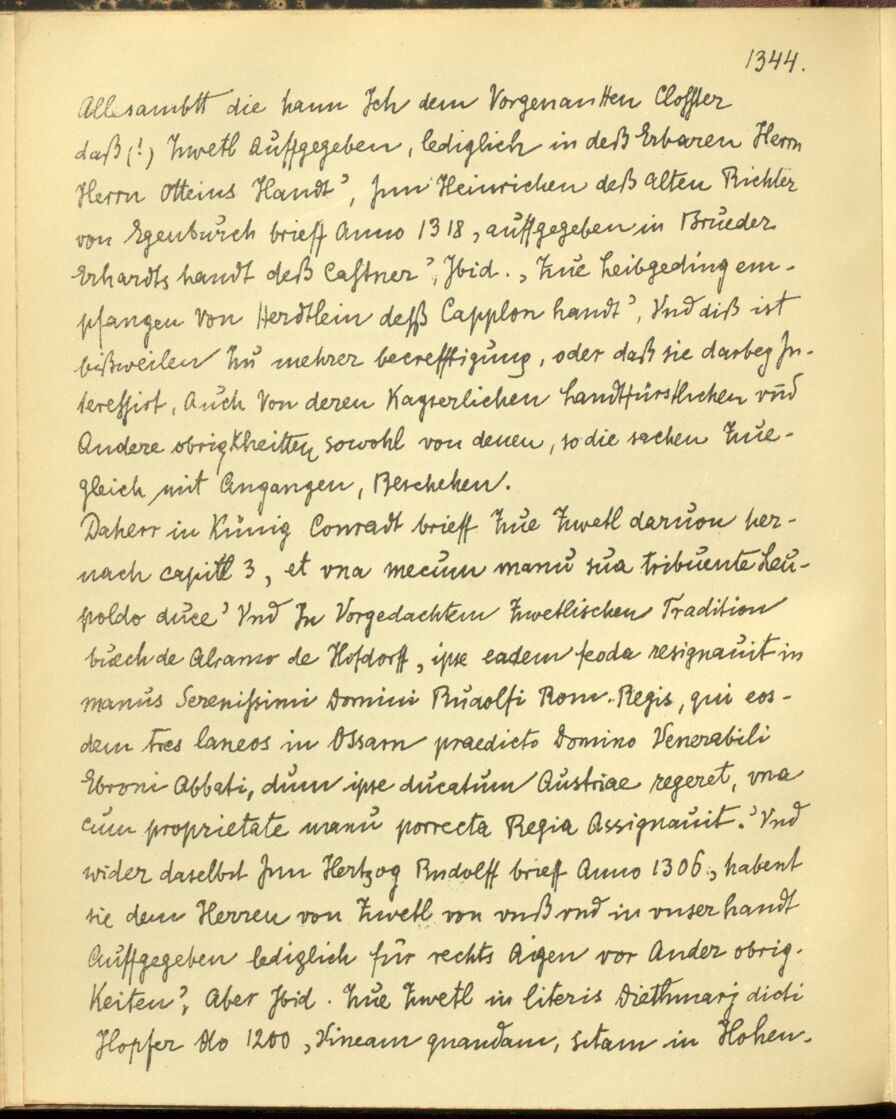 1344.
Allesambtt die hann Ich dem Vorgenantten Closster
daß (!) Zwetl Auffgegeben, lediglich in deß Erbaren Herrn
Herrn Otteins Handt', Inn Heinrichen deß alten Richter
von Egenburch brieff Anno 1318, auffgegeben in Brueder
Erhardts handt deß Castner', Ibid. , Zue Leibgeding em-
pfangen von Herdtlein deß Capplon handt', Vnd diß ist
bißweilen Zu mehrer becrefftigung, oder daß sie darbey In-
teressirt, Auch Von deren Kayserlichen Landtfürstlichen vnd
Andere obrigkheitten sowohl von denen, so die sachen Zue-
gleich mit Angangen, Beschehen.
Daherr in Künig Conradt brieff Zue Zwetl daruon her-
nach capitl 3, et vna mecum manu sua tribuente Leu-
poldo duce' Vnd In Vorgedachtem Zwetlischen Tradition
buech de Alramo de Hofdorff, ipse eadem feoda resignauit in
manus Serenissimi Domini Rudolfi Rom. Regis, qui eos-
dem tres laneos in Ossarn praedicto Domino Venerabili
Ebroni Abbati, dum ipse ducatum Austriae regeret, vna
cum proprietate manu porrecta Regia Assignauit.' Vnd
wider daselbst Inn Hertzog Rudolff brieff Anno 1306, habent
sie dem Herren von Zwetl von vnß vnd in vnser handt
Auffgegeben lediglich für rechts Aigen vor Ander obrig-
Keiten', Aber Ibid. Zue Zwetl in literis Diethmarj dicti
Hopfer Ao 1200, Vineam quandam, sitam in Hohen-